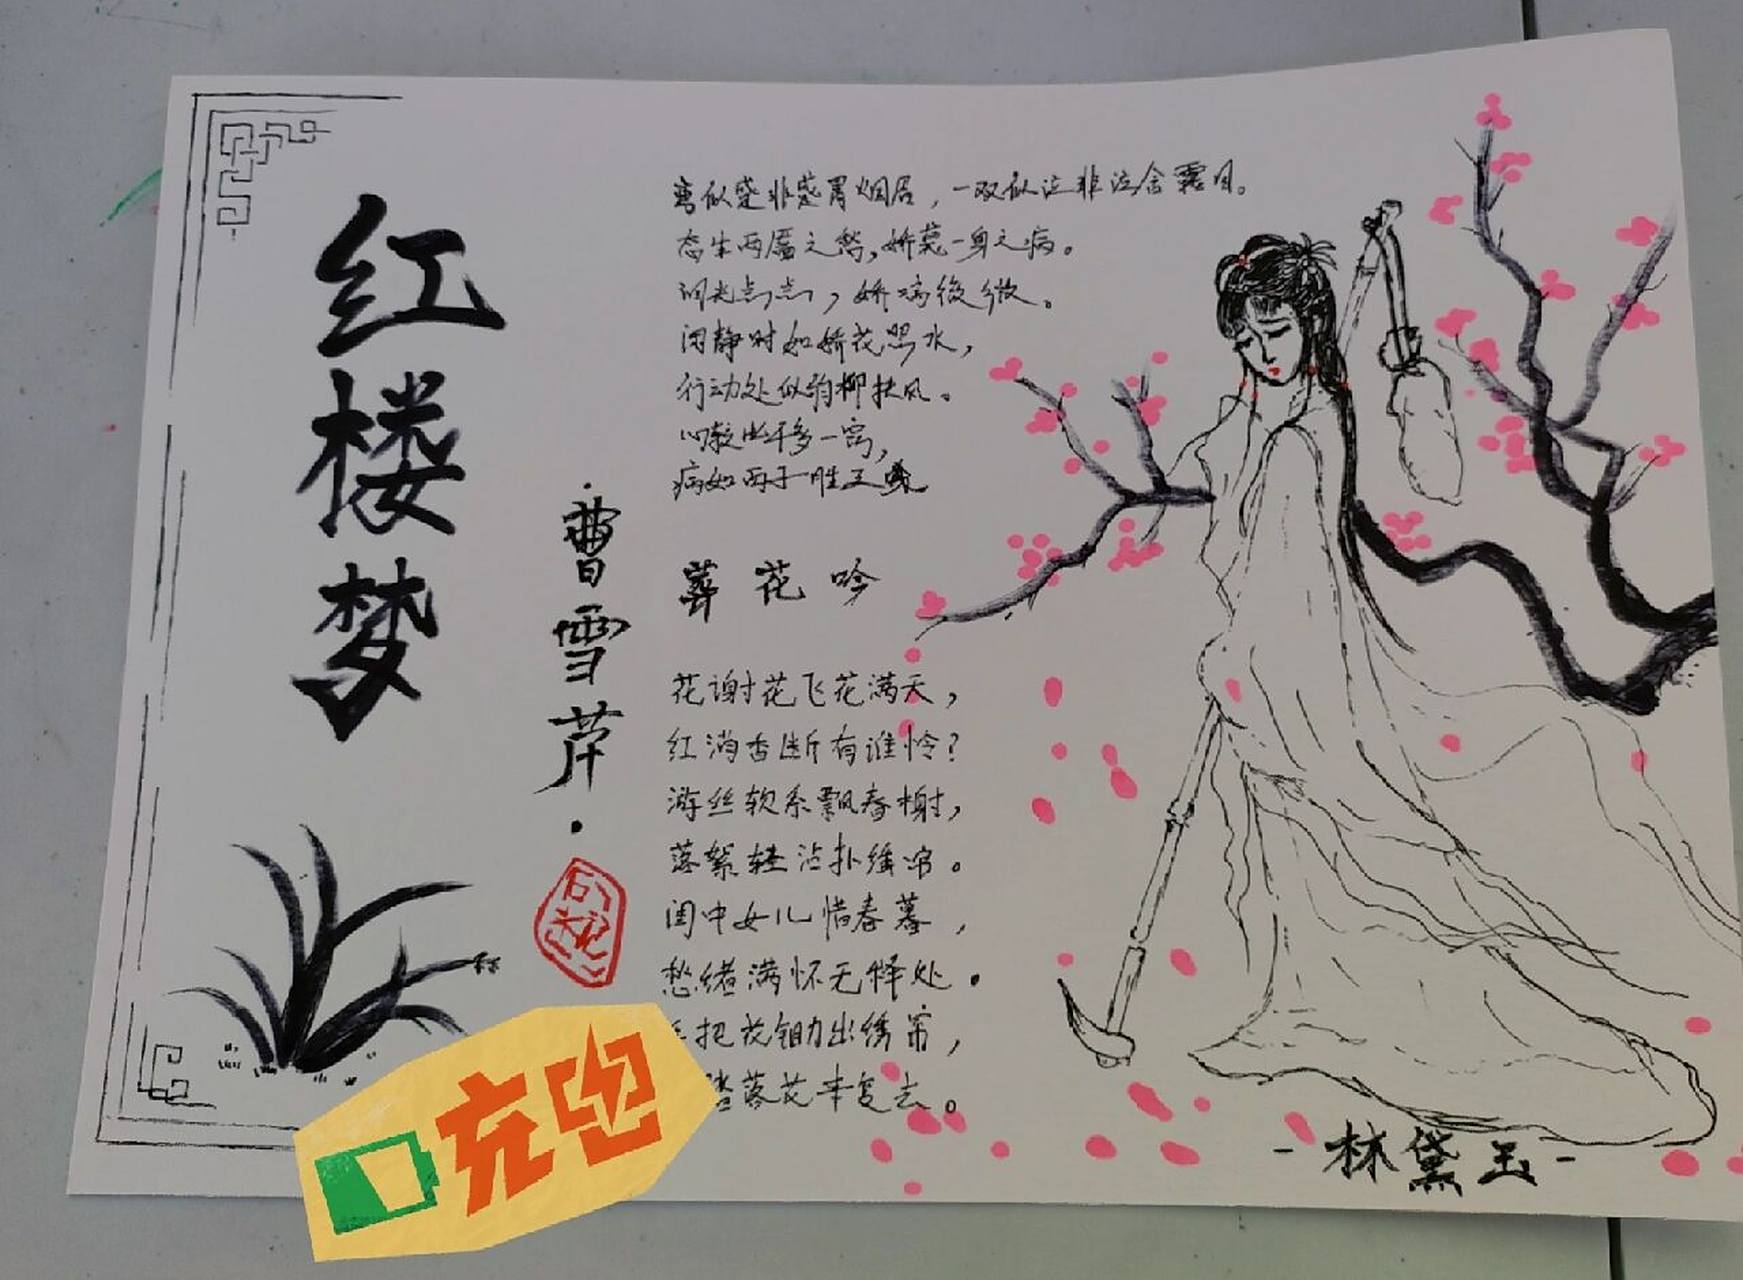 红楼梦
·曹雪芹·
弯似蹙非蹙罥烟眉，一双似泣非泣含露目。
态生两靥之愁，娇袭一身之病。
泪光点点，娇喘微微。
闲静时如娇花照水，
行动处似弱柳扶风。
心较比干多一窍，
病如西子胜三
葬花吟
花谢花飞花满天，
红消香断有谁怜？
游丝软系飘春榭，
落絮轻沾扑绣帘。
闺中女儿惜春暮，
愁绪满怀无释处。
把花锄出绣帘，
踏落花来复去。
-林黛玉-
充电